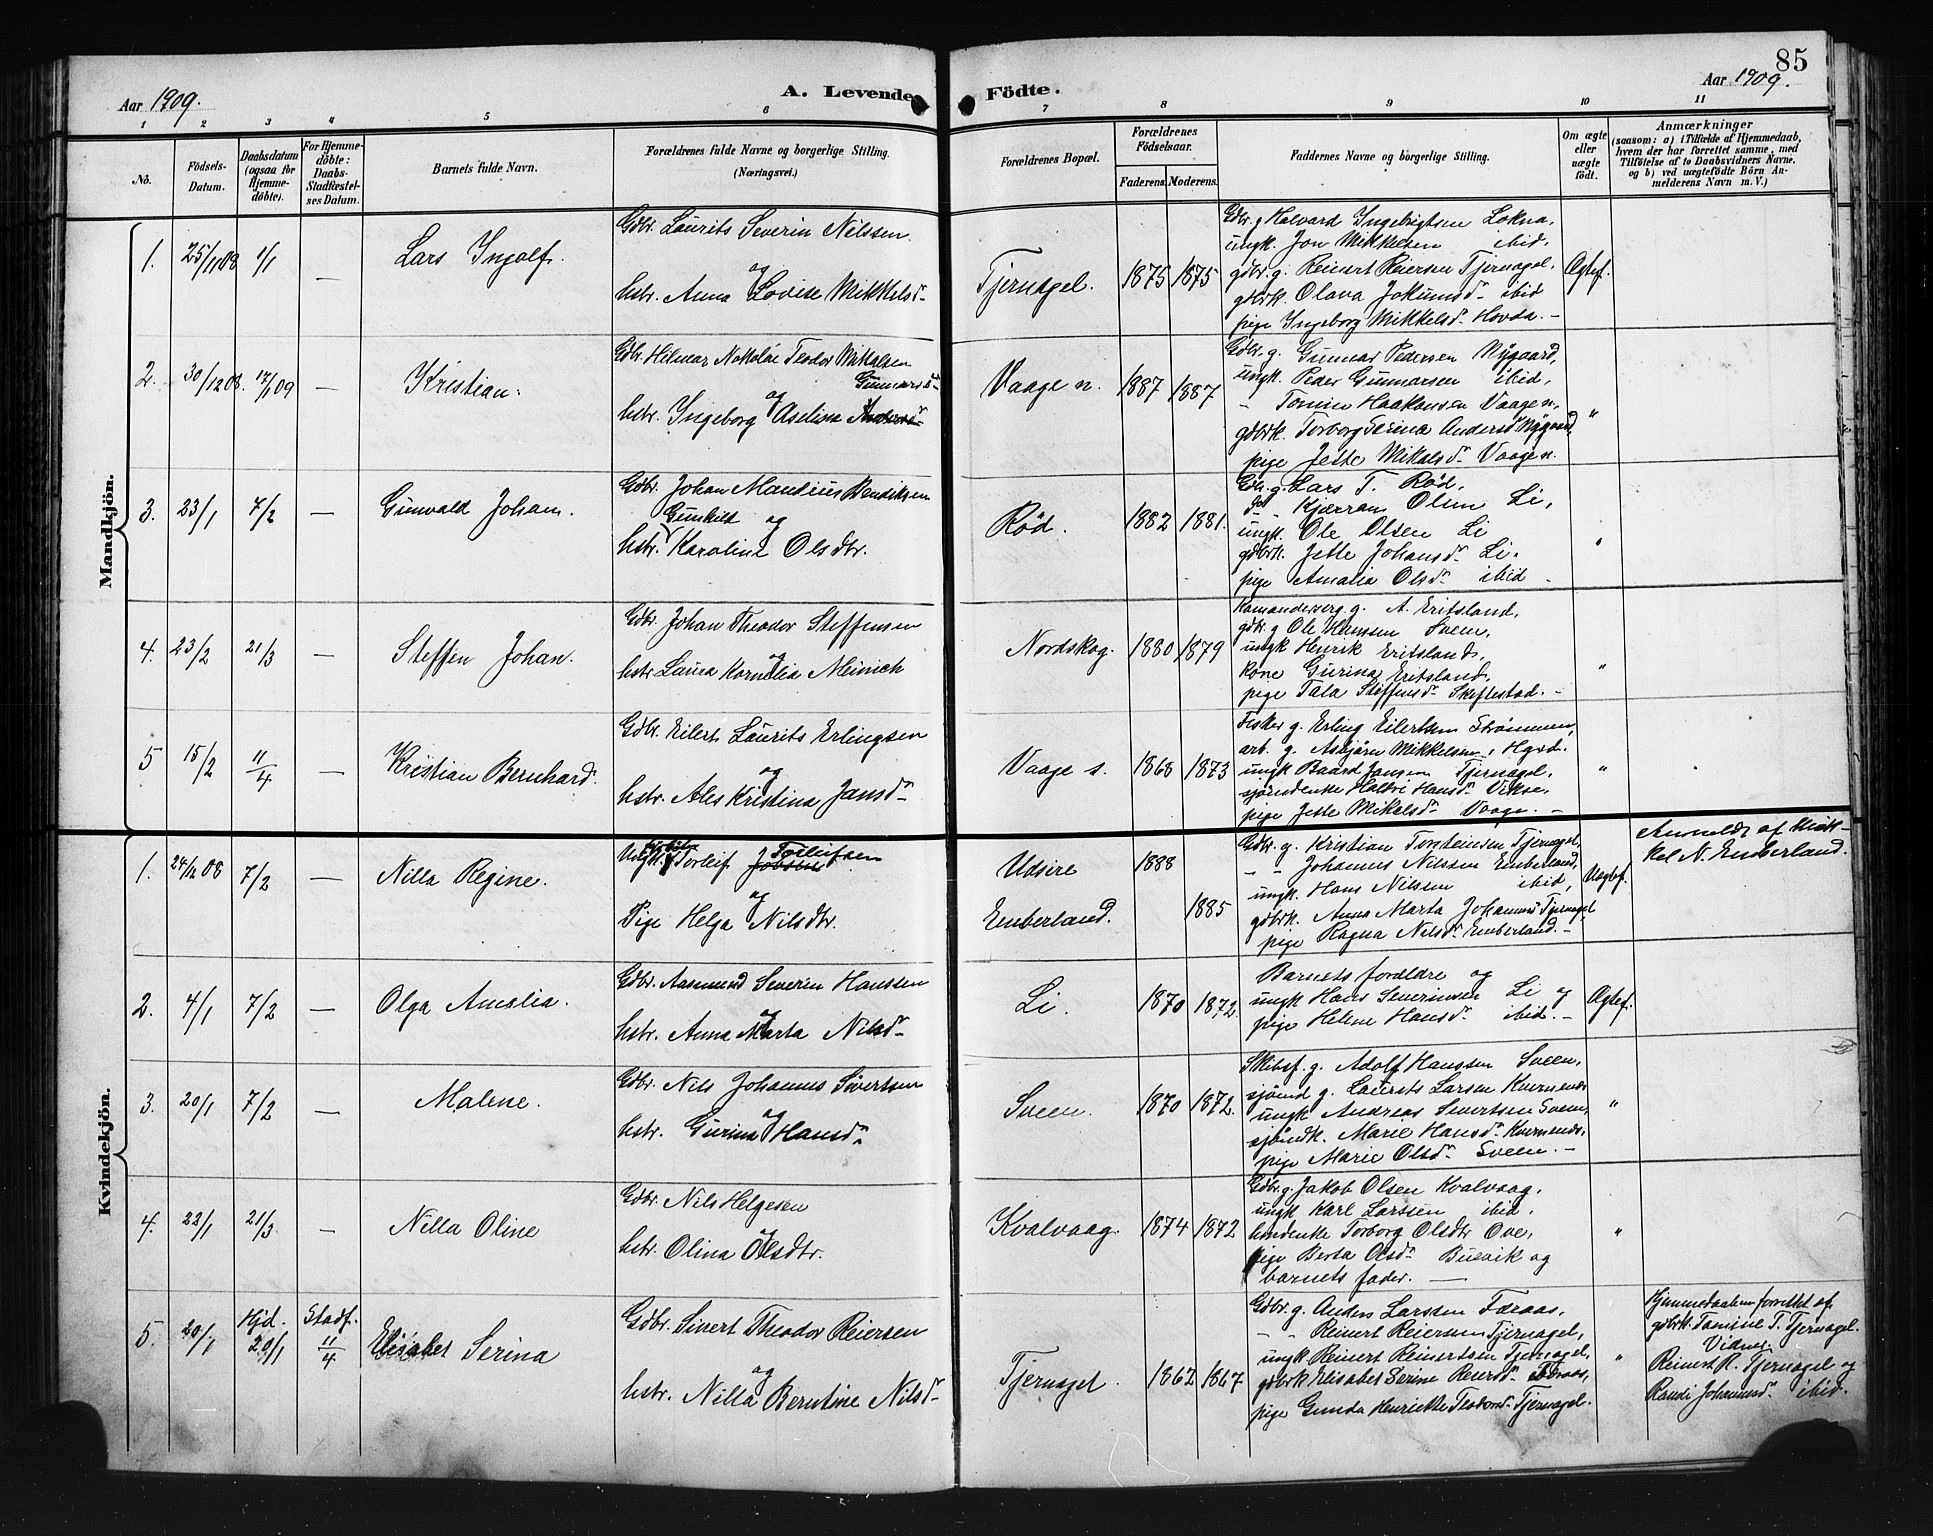 85
Aar 1909.
A. Levende Födte.
Aar 1909.
1 2 3 4 5 6 7 8 9 10 11
No.
Födsels-Datum.
Daabsdatum (ogsaa for Hjemme-döbte).
For Hjemme-döbte: Daabs-Stadfæstel-ses Datum.
Barnets fulde Navn.
Forældrenes fulde Navne og borgerlige Stilling.
(Næringsvei.)
Forældrenes Bopæl.
Forældrenes Födselsaar.
Faderens. Moderens.
Faddernes Navne og borgerlige Stilling.
Om ægte eller uægte födt.
Anmærkninger
(saasom: a) i Tilfælde af Hjemmedaab,
hvem der har forrettet samme, med
Tilföielse af to Daabsvidners Navne.
og b) ved uægtefödte Börn An-
melderens Navn m. V.)
Mandkjön.
1. 25/11 08 1/1 — Lars Ingolf.
Gdbr. Laurits Severin Nilssen
og
hstr. Anna Lovise Mikkelsd.
Tjernagel. 1875 1875
Gdbr. g. Halvard Ingebrigtsen Lokna,
ungk. Jon Mikkelsen ibid,
gdbr. g. Reinert Reiersen Tjernagel,
gdbrk. Olava Jokumsd. ibid
pige Ingeborg Mikkelsd. Hovda. —
Ægtef.
2. 30/12 08. 17/1 09 — Kristian.
Gdbr. Hilmar Nikolai Teodor Mikkelsen
og Gunnarsd.
hstr. Ingeborg Aselina
Vaage n. 1887 1887
Gdbr. g. Gunnar Pedersen Nygaard,
ungk. Peder Gunnarsen ibid,
- Tomine Haakonsen Vaage n,
gdbrk. Torborg Serina Andersd. Nygaard,
pige Jette Mikalsd. Vaage n.
"
3. 23/1 7/2 — Gunvald Johan.
Gdbr. Johan Mandius Bendiksen
Gunhild og
hstr. Karoline Olsdtr.
Rød. 1882 1881.
Gdbr. g. Lars T. Rød,
do - Kjærran Olsen Li,
ungk. Ole Olsen Li
gdbrk. Jette Johansd. Li.
pige Amalia Olsd. ibid -
"
4. 23/2 21/3 — Steffen Johan.
Gdbr. Johan Theodor Steffensen
og
hstr. Laura Kornelia Meinich
Nordskog. 1880 1879
g. A. Eritsland,
gdbr. g Ole Hanssen Sveen,
ungk Henrik Eritsland,
kone Gurina Eritsland,
pige Tala Steffensd. Skeftestad. —
"
5 15/2 11/4 — Kristian Bernhard.
Gdbr. Eilert Laurits Erlingsen
og
hstr. Ales Kristina Jansd.
Vaage s. 1868 1873
Fisker g. Erling Eilertsen Strømmen,
arb. g. Asbjørn Mikkelsen, Hgsd.
ungk Baard Jansen Tjernagel,
sjømdenke Halbri Hansd. Vikse,
pige Jette Mikalsd. Vaage. —
"
Kvindekjön.
1. 24/12 08 7/2 — Nilla Regine.
Ungk. Torleif Torleifsen
og
Pige Helga Nilsdtr.
Udsire 1888
Emberland. 1885
Gdbr. g. Kristian Torsteinsen Tjernagel,
- - Johannes Nilssen Emberland,
ungk. Hans Nilssen ibid,
gdbrk. Anna Marta Johannesd. Tjernagel
pige Ragna Nilsd. Emberland. —
Uægtef.
Anmeldt af Mik-
kel N. Emberland.
2. 4/1 7/2 — Olga Amalia.
Gdbr. Aasmund Severin Hanssen
og
hstr. Anna Marta Nilsd.
Li. 1870 1872.
Barnets forældre og
ungk Hans Severinsen Li og
pige Helene Hansd. ibid. —
Ægtef.
3. 20/1 7/2 — Malene.
Gdbr. Nils Johannes Sivertsen
og
hstr. Gurina Hansd.
Sveen. 1870 1872.
Skibsf. g. Adolf Hanssen Sveen,
sjømd g. Laurits Larsen Kvernenes
ungk Andreas Sivertsen Sveen,
sjømdk. Marie Hansd. Kvernenes,
pige Marie Olsd. Sveen. —
"
4. 22/1 21/3. — Nilla Oline
Gdbr. Nils Helgesen
og
hstr. Olina Olsdtr.
Kvalvaag. 1874 1872
Gdbr. g. Jakob Olsen Kvalvaag,
ungk Karl Larssen ibid,
Torborg Olsdtr Ove,
pige Berta Olsd. Buavik og
barnets fader. —
"
5. 20/1 Hjd. 20/1 Stadf. 11/4 Elisabet Serina
Gdbr. Sivert Theodor Reiersen
og
hstr. Nilla Berntine Nilsd.
Tjernagel. 1862 1867
Gdbr. g. Anders Larssen Færaas,
- - Reinert Reiersen Tjernagel,
ungk. Reinert Reinertsen Tjernagel,
gdbrk Elisabet Serine Reiersd. Færaas,
pige Gunda Henriette Teodorsd. Tjernagel.
"
Hjemmedaaben forrettet af
gdbrk. Tomine T. Tjernagel.
Vidner
Reinert R. Tjernagel og
Randi Johannesd. ibid.